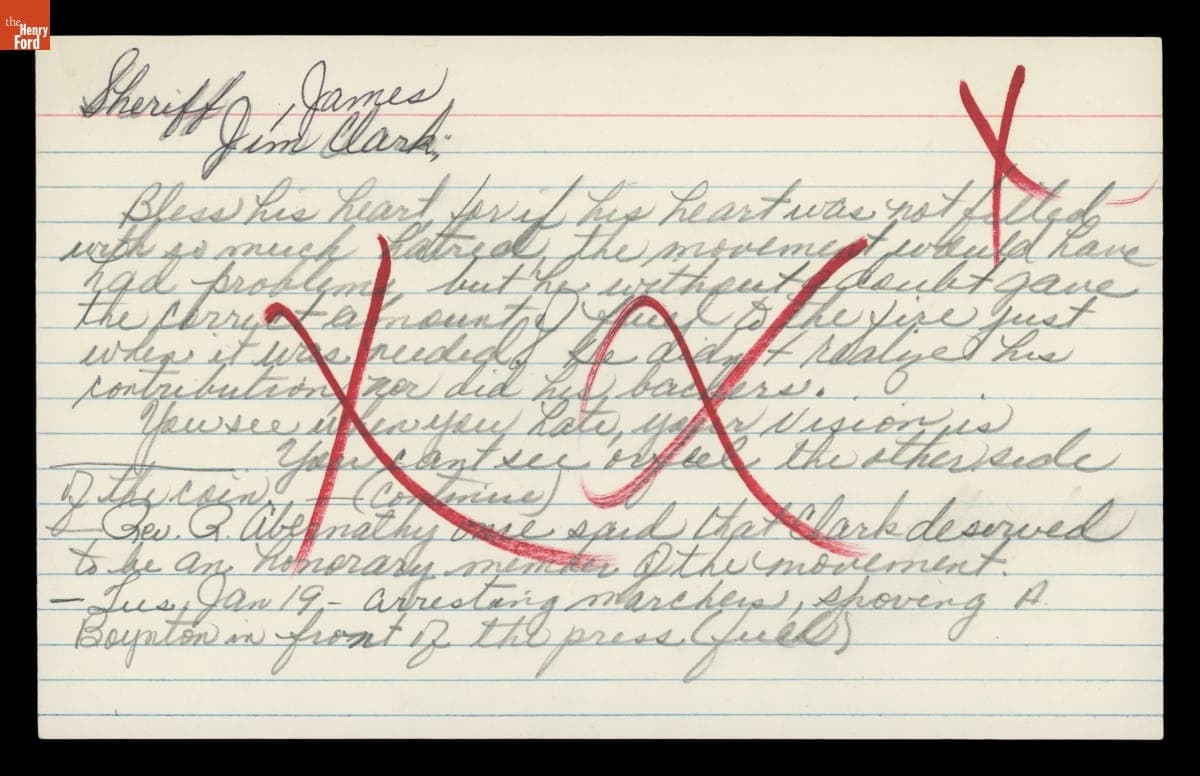 the
Henry
Ford
Sheriff, James
Jim Clark;
Bless his heart, for if his heart was not filled
with so much hatred, the movement would have
had problems but he without doubt gave
the corrupt amount of fuel to the fire just
when it was needed. He didn't realize his
contribution nor did his backers.
You see when you hate, your vision is
You can't see or feel the other side
of the coin. — (continue)
— Rev. R. Abernathy once said that Clark deserved
to be an honorary member of the movement.
— Tues, Jan 19, - arresting marchers, shoving A.
Boynton in front of the press. (fuel)